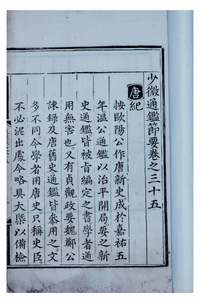 少微通鑑節要卷之三十五
唐紀
按歐陽公作唐新史成於嘉祐五
年溫公通鑑以治平開局要之新
史通鑑皆被旨編定之書學者通
用無害也又有貞觀政要魏鄭公
諫録及唐舊史通鑑皆參用之文
多不同今學者用唐史只稱史臣
不必泥出處今略具大槩以備檢